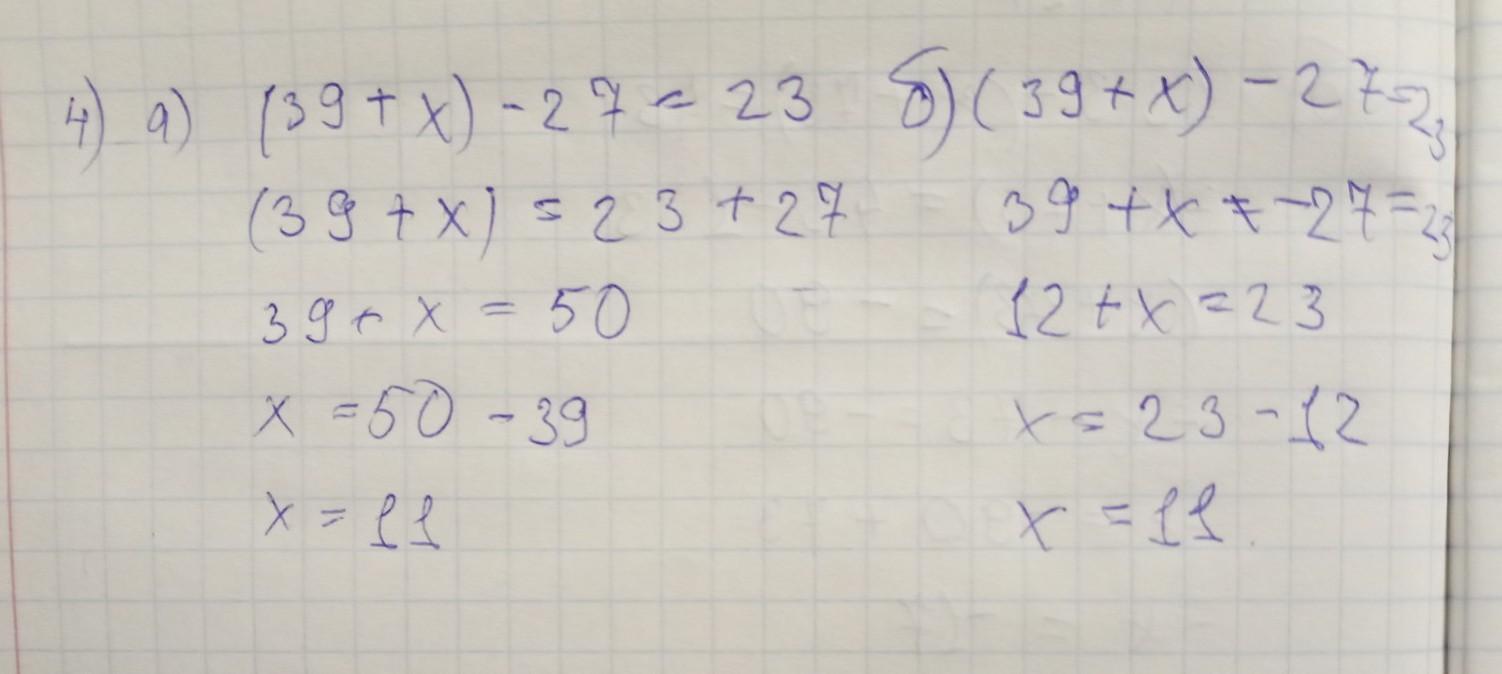 4) а) (39 + x) - 27 = 23
(39 + x) = 23 + 27
39 + x = 50
x = 50 - 39
x = 11
б) (39 + x) - 27 = 23
39 + x - 27 = 23
12 + x = 23
x = 23 - 12
x = 11